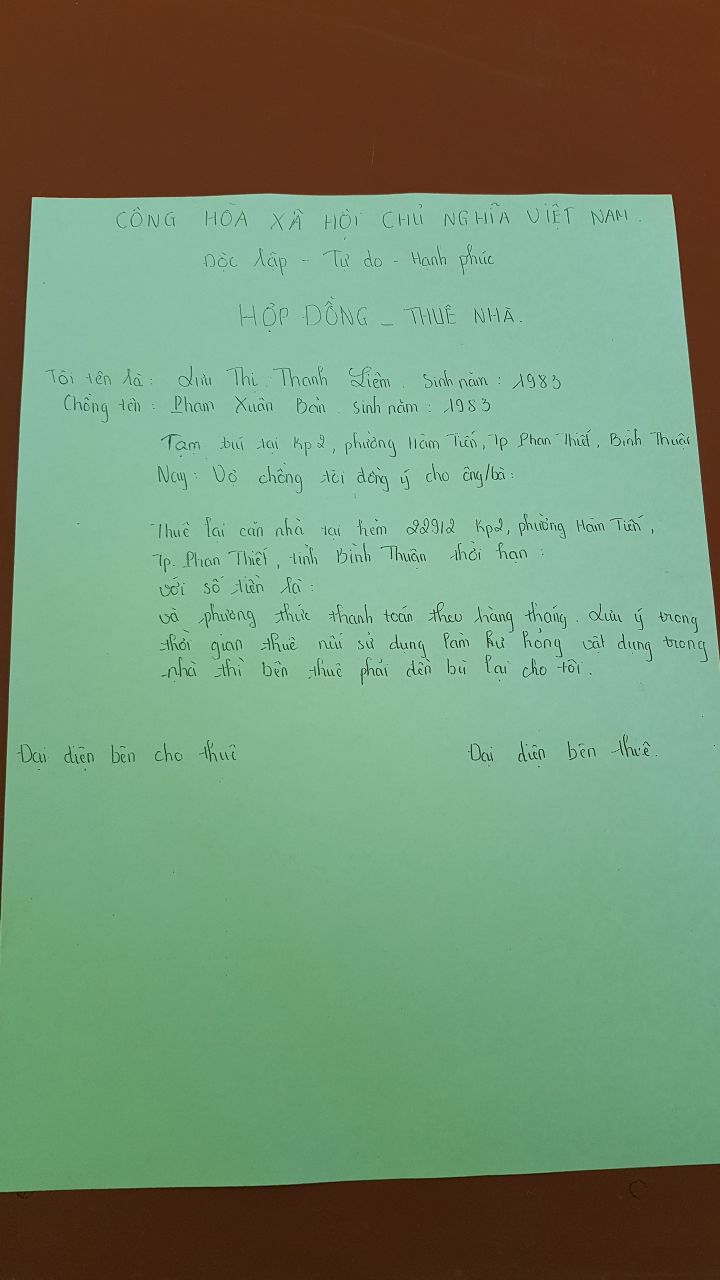 CÔNG HÒA XÃ HỘI CHỦ NGHĨA VIỆT NAM.
Độc lập - Tự do - Hạnh phúc
HỢP ĐỒNG - THUÊ NHÀ.
Tôi tên là: Lưu Thị Thanh Liêm. Sinh năm: 1983
Chồng tên: Phạm Xuân Bản. sinh năm: 1983
Tạm trú tại Kp2, phường Hàm Tiến, Tp Phan Thiết, Bình Thuận
Nay: Vợ chồng tôi đồng ý cho ông/bà:
Thuê lại căn nhà tại hẻm 229/2 Kp2, phường Hàm Tiến,
Tp. Phan Thiết, tỉnh Bình Thuận thời hạn:
với số tiền là:
và phương thức thanh toán theo hàng tháng. Lưu ý trong
thời gian thuê nếu sử dụng làm hư hỏng vật dụng trong
nhà thì bên thuê phải đền bù lại cho tôi.
Đại diện bên cho thuê
Đại diện bên thuê.